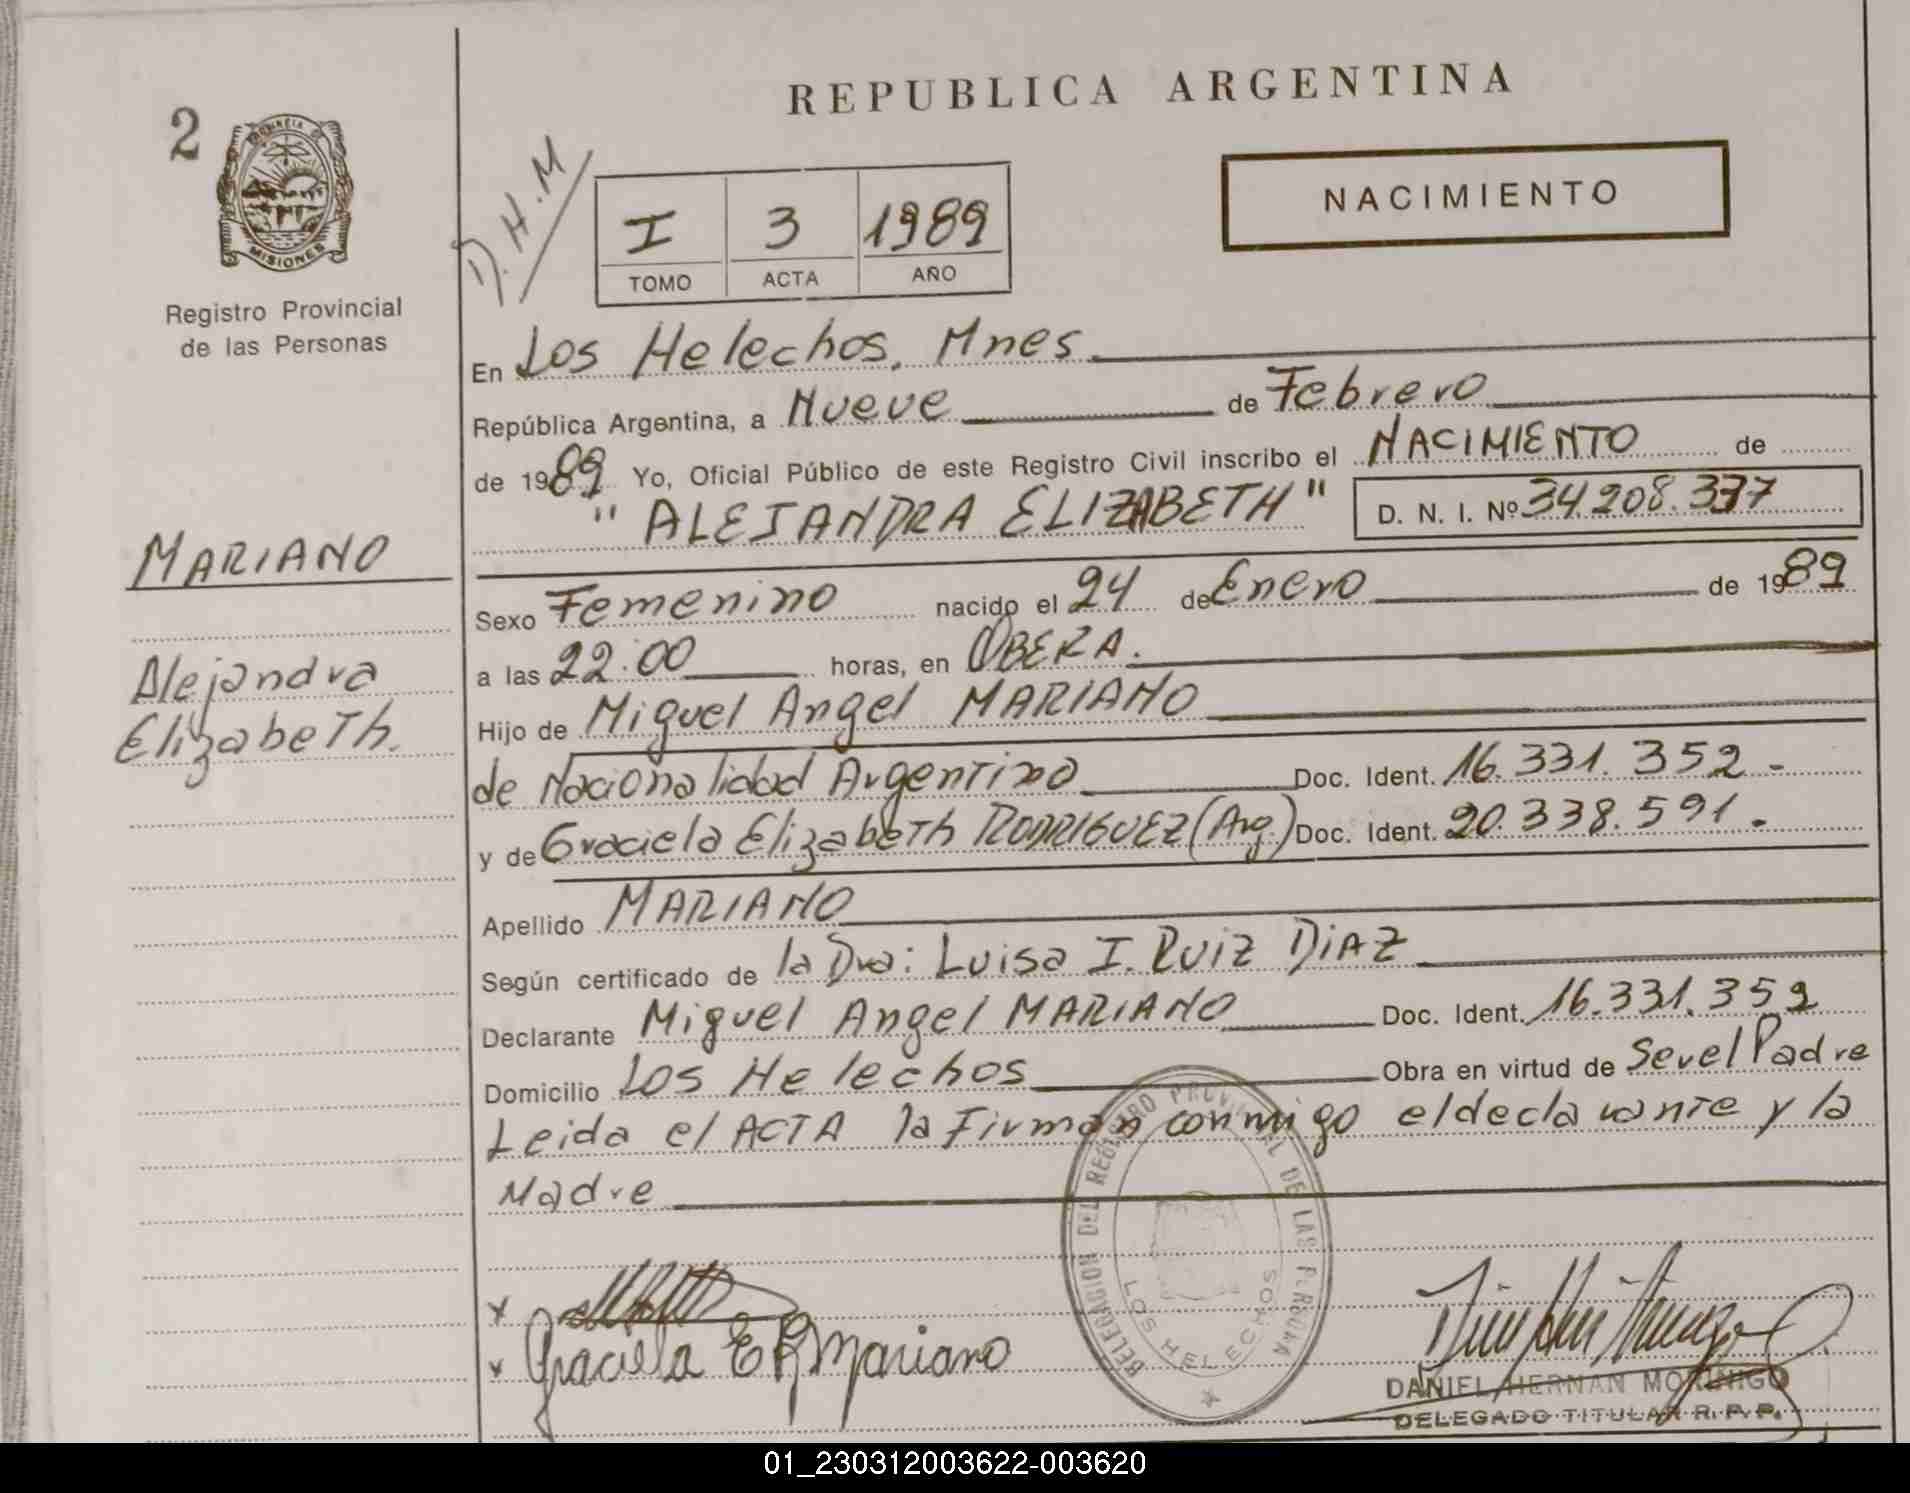 REPUBLICA ARGENTINA
2
PROVINCIA DE
MISIONES
Registro Provincial
de las Personas
D.H.M
I 3 1989
TOMO ACTA AÑO
NACIMIENTO
En Los Helechos, Mnes
República Argentina, a Nueve de Febrero
de 1989 Yo, Oficial Público de este Registro Civil inscribo el NACIMIENTO de
" ALEJANDRA ELIZABETH " D. N. I. Nº 34.208.337
MARIANO
Alejandra
Elizabeth.
Sexo Femenino nacido el 24 de Enero de 1989
a las 22:00 horas, en OBERA.
Hijo de Miguel Angel MARIANO
de Nacionalidad Argentino Doc. Ident. 16.331.352-
y de Graciela Elizabeth RODRIGUEZ (Arg.) Doc. Ident. 20.338.591.
Apellido MARIANO
Según certificado de la Dra: Luisa I. Ruiz DIAZ
Declarante Miguel Angel MARIANO Doc. Ident. 16.331.352
Domicilio Los Helechos Obra en virtud de Ser el Padre
Leida el ACTA la Firman conmigo el declarante y la
Madre
DELEGACION DEL REGISTRO PROVINCIAL DE LAS PERSONAS
LOS HELECHOS
x
x Graciela E R Mariano
DANIEL HERNAN MORINIGO
DELEGADO TITULAR R. P. P.
01_230312003622-003620